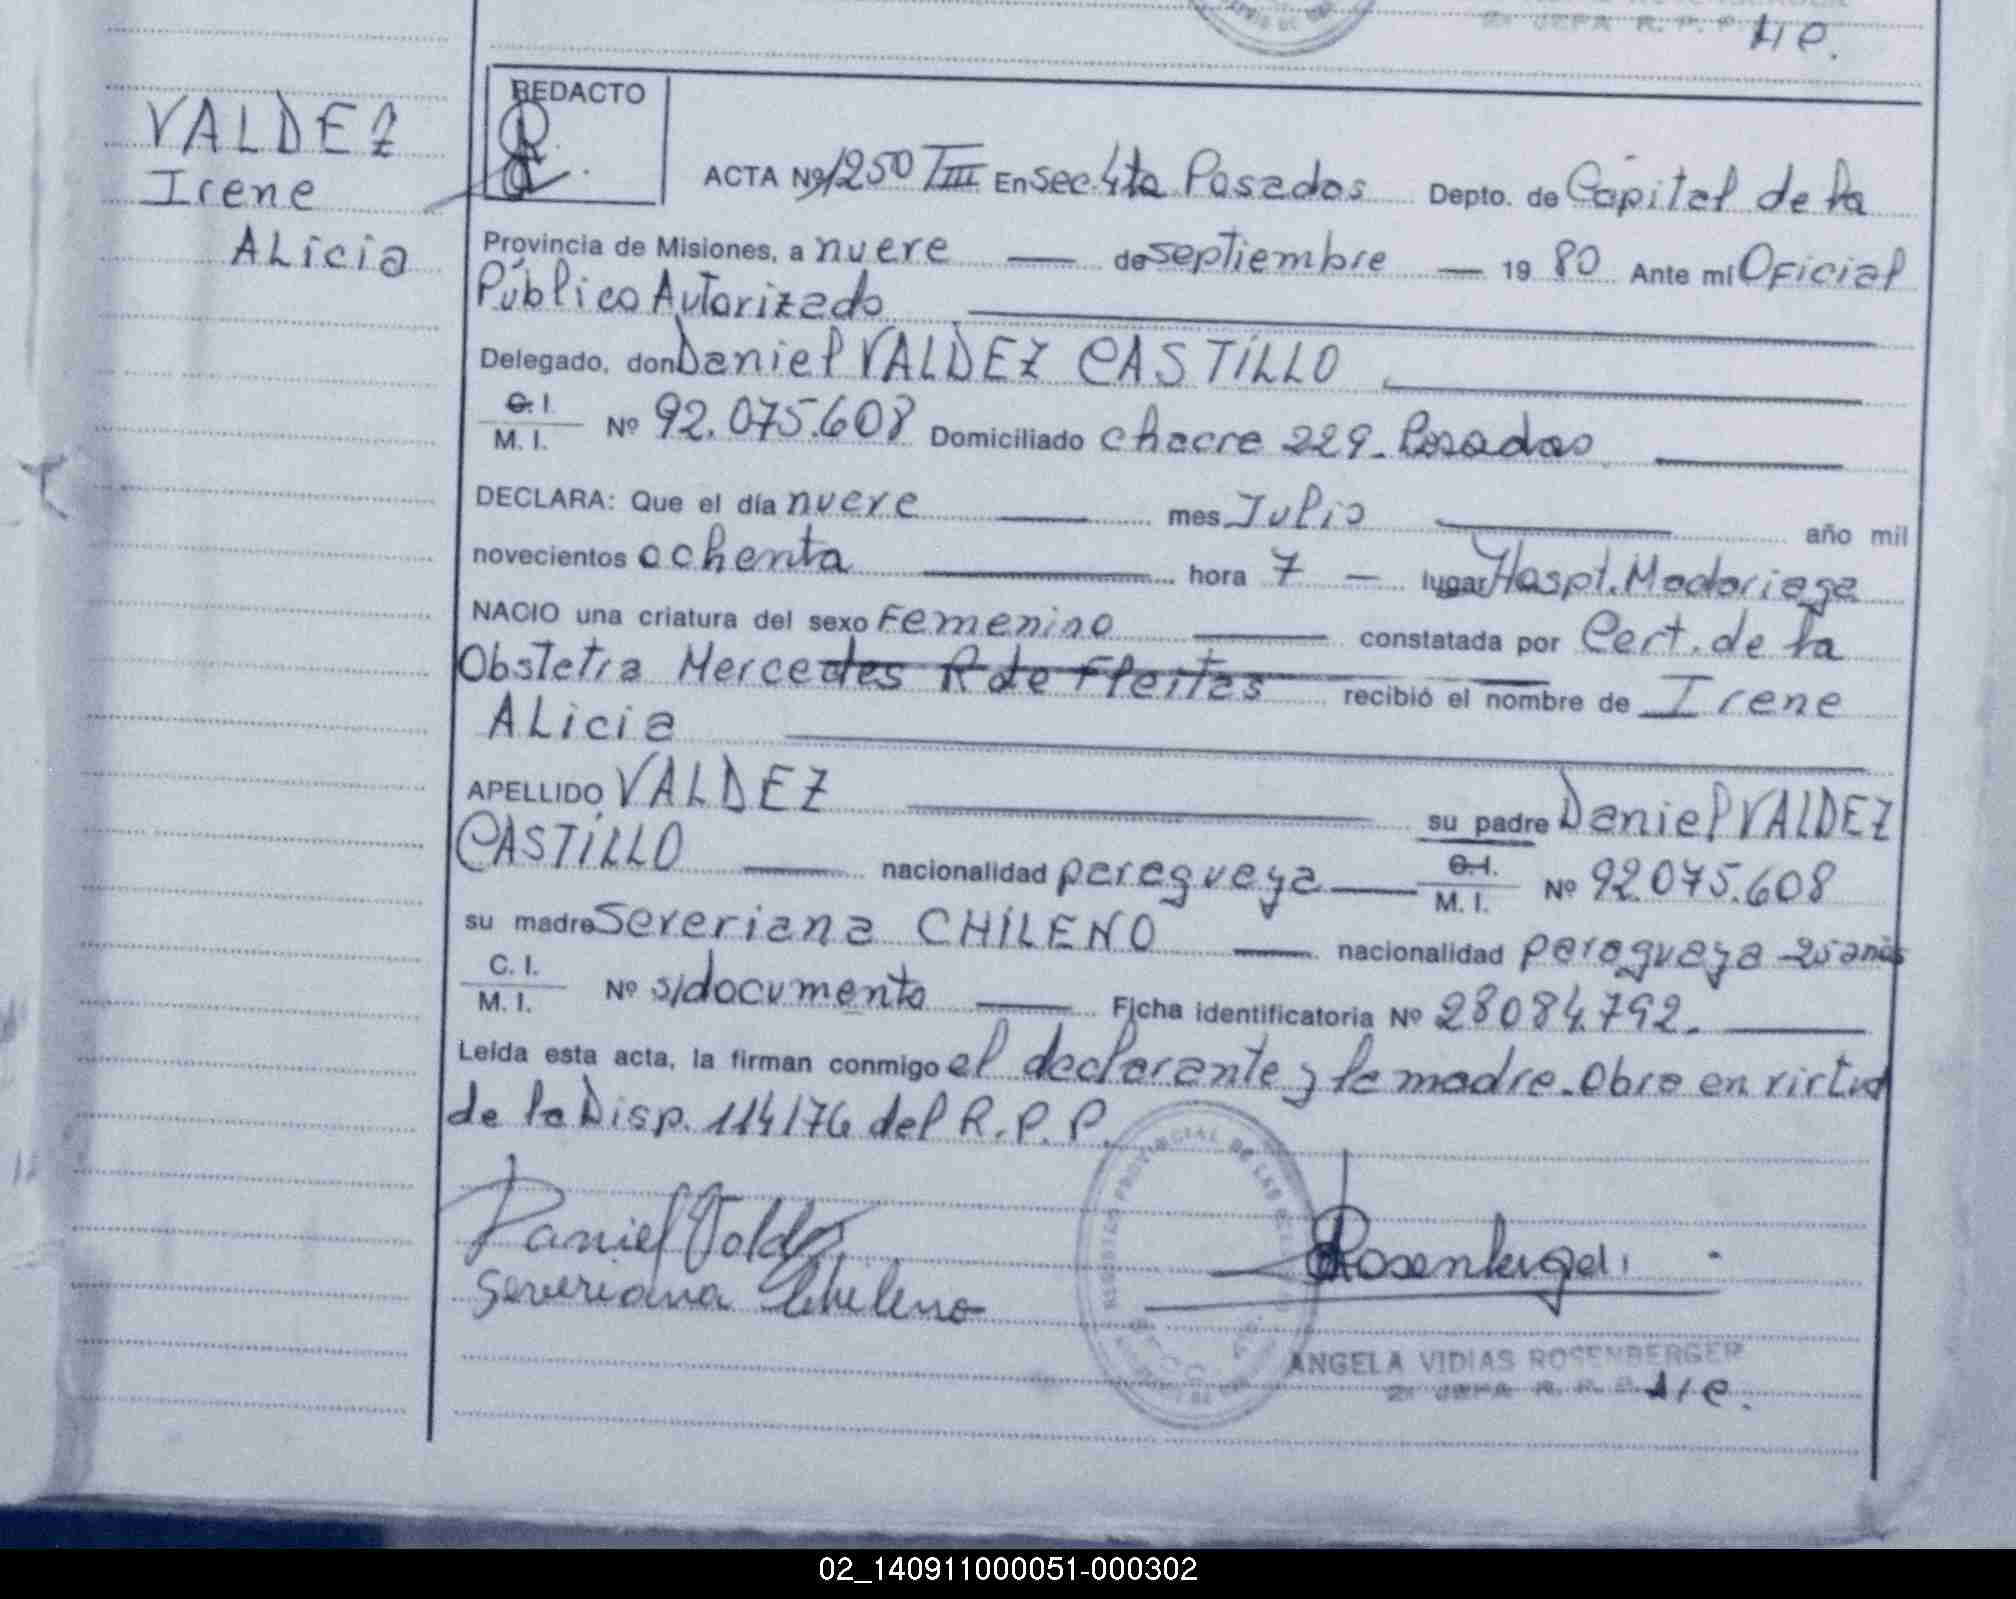 2ª JEFA R. P. P.
A/C.
VALDEZ
Irene
ALicia
REDACTO
ACTA Nº 1250 TIII En Sec. 4ta Posadas Depto. de Capital de la
Provincia de Misiones, a nueve — de septiembre — 19 80 Ante mí Oficial
Público Autorizado
Delegado, don Daniel VALDEZ CASTILLO
C. I.
M. I. Nº 92.075.608 Domiciliado chacra 229 - Posadas
DECLARA: Que el día nueve mes Julio año mil
novecientos ochenta hora 7 — lugar Hospt. Madariaga
NACIO una criatura del sexo Femenino constatada por Cert. de la
Obstetra Mercedes R de Fleitas recibió el nombre de Irene
ALicia
APELLIDO VALDEZ su padre Daniel VALDEZ
CASTILLO nacionalidad paraguaya C. I. M. I. Nº 92.075.608
su madre Severiana CHILENO nacionalidad paraguaya 25 años
C. I.
M. I. Nº s/documento Ficha identificatoria Nº 28084.792.
Leída esta acta, la firman conmigo el declarante y la madre. Obro en virtud
de la Disp. 114/76 del R. P. P.
Daniel Valdez
Severiana Chileno
Rosenberger
ANGELA VIDIAS ROSENBERGER
2ª JEFA R. P. P. A/C.
02_140911000051-000302